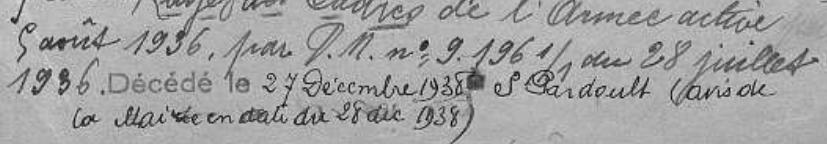 Rayé des Cadres de l'Armée active
5 août 1936, par D.M. n°, 9.196 1/1 du 28 juillet
1936. Décédé le 27 Décembre 1938 S Pardoult (avis de
la Mairie en date du 28 dec 1938)